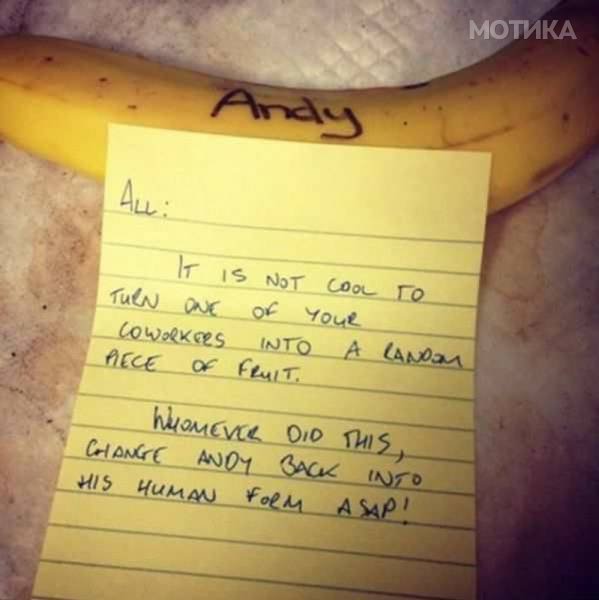 МОТИКА
Andy
ALL:
IT IS NOT COOL TO
TURN ONE OF YOUR
COWORKERS INTO A RANDOM
PIECE OF FRUIT.
WHOMEVER DID THIS,
CHANGE ANDY BACK INTO
HIS HUMAN FORM ASAP!